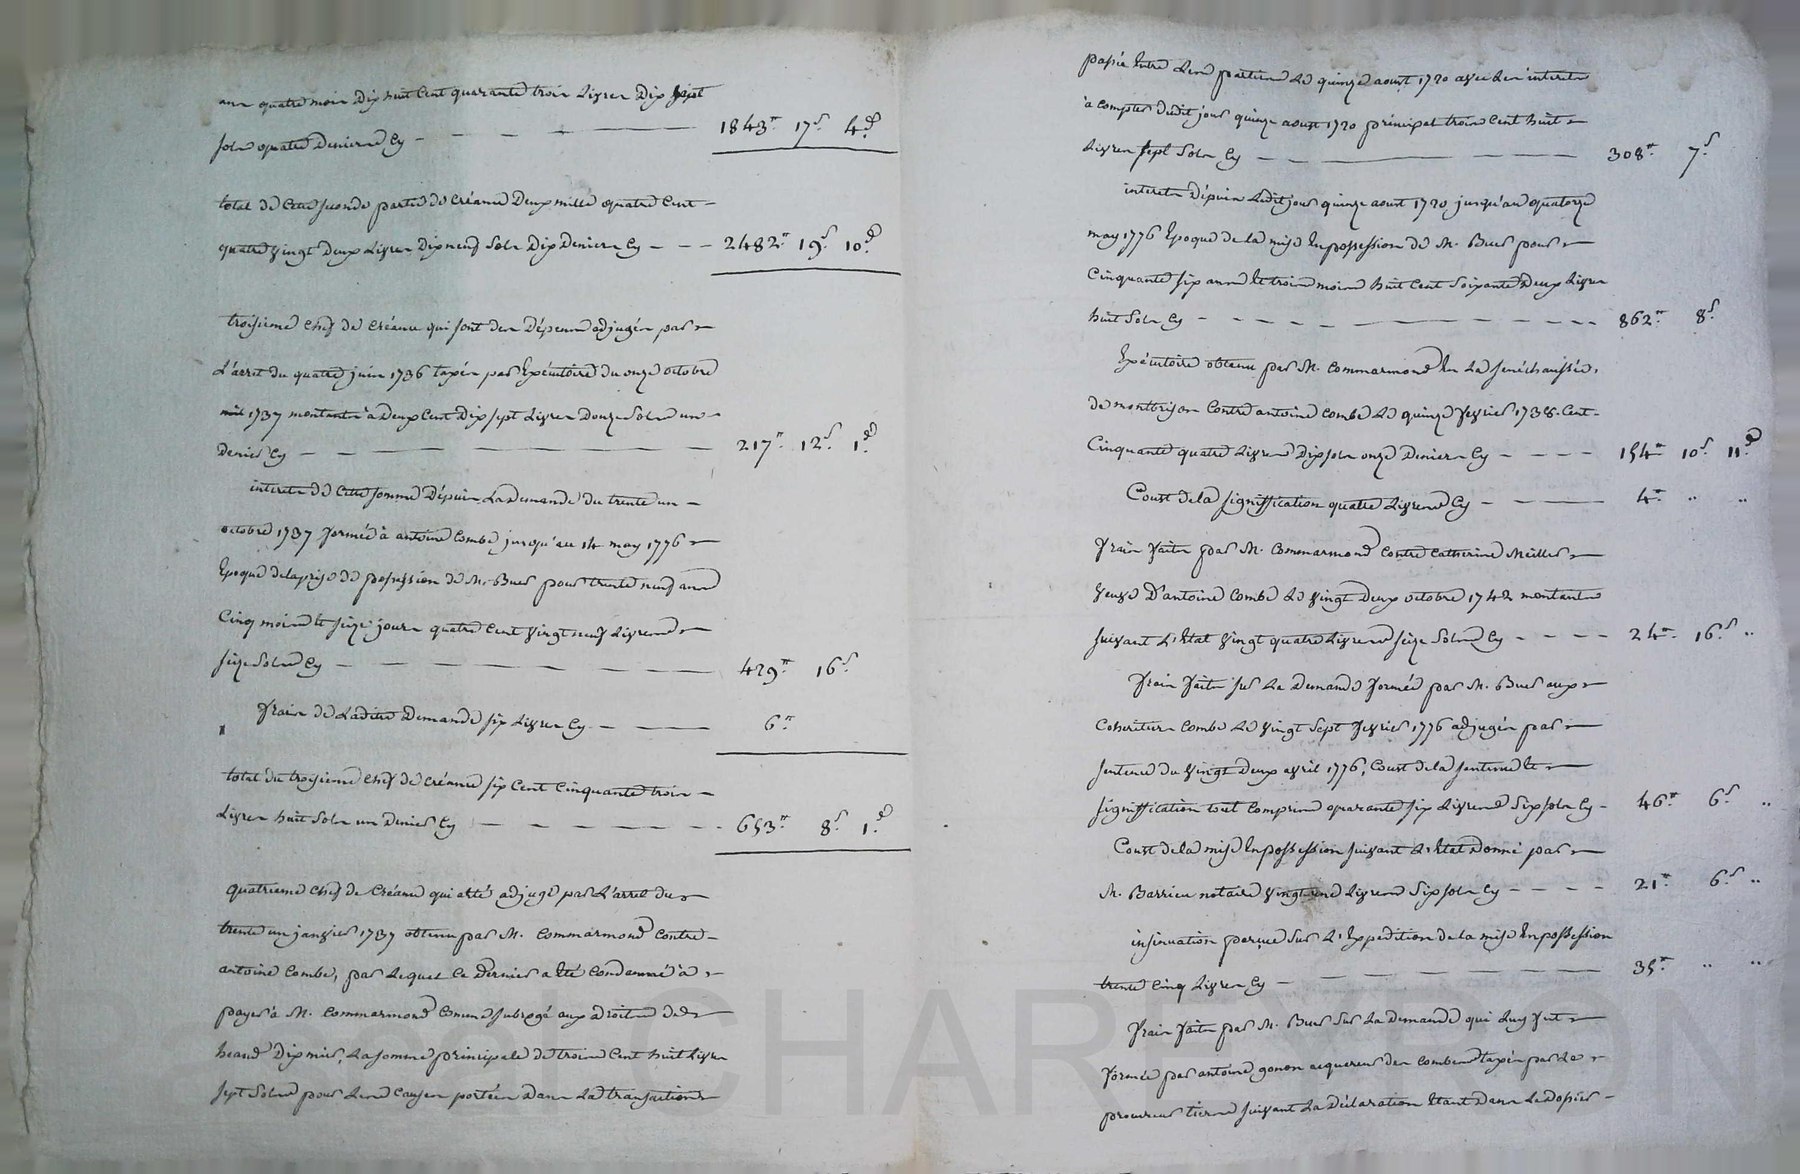 ans quatre mois Dix huit Cent quarante trois Livres Dix sept
sols quatre Deniers Cy - - - - 1843ᵗᵗ 17ˢ 4ᵈ
total de Cette seconde partie de Créance Deux mille quatre Cent -
quatre vingt Deux Livres Dix neuf Sols Dix Deniers Cy - - - 2482ᵗᵗ 19ˢ 10ᵈ
troisieme Chef de Créance qui sont des Dépens adjugés par
L'arret du quatre juin 1736 taxés par Exécutoire du onze octobre
1737 montants à Deux Cent Dix sept Livres Douze Sols un
Denier Cy - - - - 217ᵗᵗ 12ˢ 1ᵈ
interets de Cette somme Dépuis La Demande du trente un -
octobre 1737 formée à antoine Combe jusqu'au 14 may 1776
Epoque de la prise de possession de M. Buer pour trente neuf ans
Cinq mois et seize jours quatre Cent vingt neuf Livres
seize Sols Cy - - - - 429ᵗᵗ 16ˢ
frais de Ladite Demande six Livres Cy - - 6ᵗᵗ
total du troisieme Chef de Créance six Cent Cinquante trois -
Livres huit Sols un Denier Cy - - - - 653ᵗᵗ 8ˢ 1ᵈ
quatrieme Chef de Créance qui a été adjugé par L'arret du
trente un janvier 1737 obtenu par M. Commarmond Contre -
antoine Combe, par Lequel Ce Dernier a été Condamné à
payer à M. Commarmond Comme subrogé aux droits de
La somme principale de trois Cent huit Livres
sept Sols pour Les Causes portées Dans La transaction
passée Entre Les parties Le quinze aoust 1720 avec Les interets
à compter dudit jour quinze aoust 1720 principal trois Cent huit
Livres sept Sols Cy - - - - 308ᵗᵗ 7ˢ
interets Dépuis Ledit jour quinze aoust 1720 jusqu'au quatorze
may 1776 Epoque de la mise En possession de M. Buer pour
Cinquante six ans et trois mois huit Cent soixante Deux Livres
huit Sols Cy - - - - 862ᵗᵗ 8ˢ
Exécutoire obtenu par M. Commarmond En La sénéchaussée,
de montbrison Contre antoine Combe Le quinze fevrier 1738. Cent -
Cinquante quatre Livres Dix sols onze Deniers Cy - - - - 154ᵗᵗ 10ˢ 11ᵈ
Coust de la signiffication quatre Livres Cy - - 4ᵗᵗ " "
frais faits par M. Commarmond Contre Catherine Meiller
veuve D'antoine Combe Le vingt Deux octobre 1742 montants
suivant L'Etat vingt quatre Livres seize Sols Cy - - - - 24ᵗᵗ 16ˢ "
frais faits sur La Demande formée par M. Buer aux
Coheritiers Combe Le vingt sept fevrier 1776 adjugés par
sentence du vingt Deux avril 1776, Coust de la sentence et
signiffication tout Compris quarante six Livres Six sols Cy - 46ᵗᵗ 6ˢ "
Coust de la mise En possession suivant L'Etat Donné par
M. Barrieu notaire vingt une Livres Six sols Cy - - - - 21ᵗᵗ 6ˢ "
insinuation perçue sur L'Expedition de la mise En possession
trente Cinq Livres Cy - - - - 35ᵗᵗ " "
frais faits par M. Buer sur La Demande qui Luy fut
formée par antoine gonon acquereur des Combes taxés par Le
procureur tiers suivant La Déclaration Etant Dans Le Dossier -